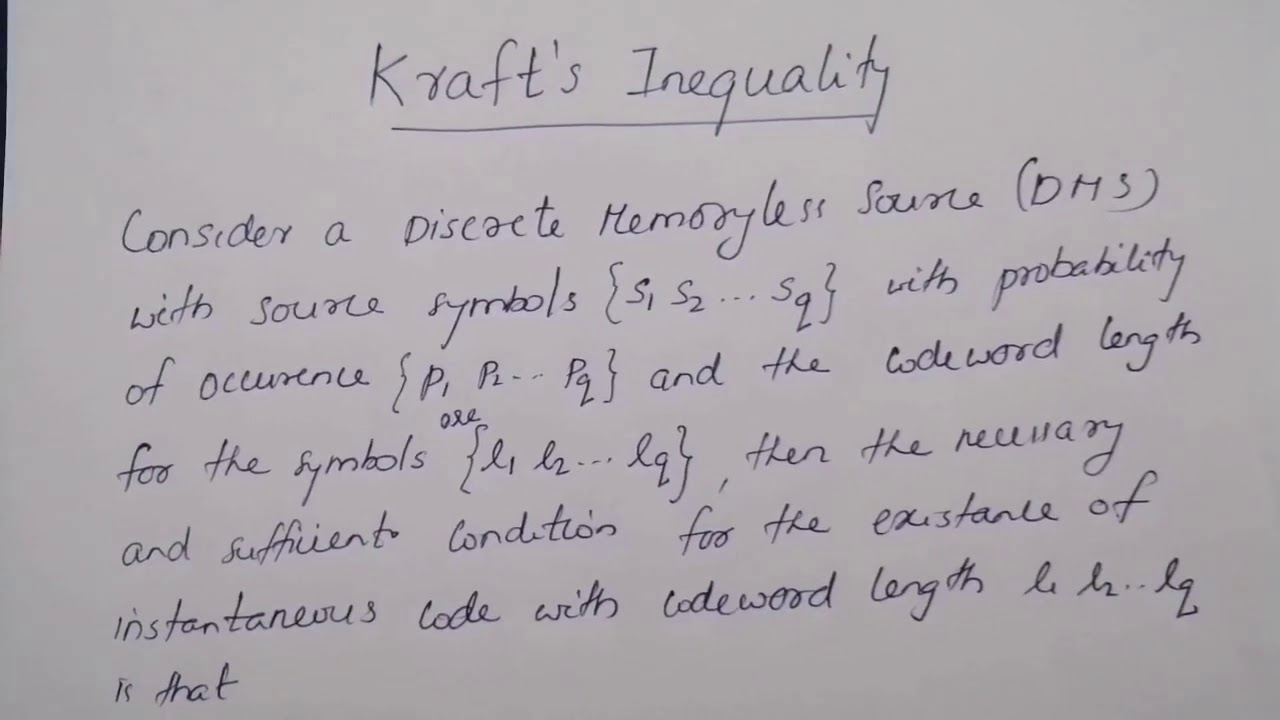 Kraft's Inequality
Consider a Discrete Memoryless Source (DMS)
with source symbols {s₁ s₂ ... sq} with probability
of occurence {p₁ p₂... pq} and the codeword length
are
for the symbols {l₁ l₂... lq}, then the necessary
and sufficient condition for the existance of
instantaneous code with codeword length l₁ l₂.. lq
is that